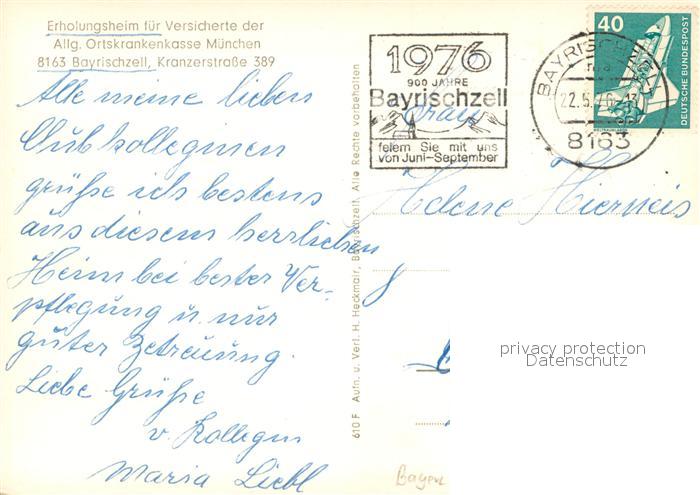 Erholungsheim für Versicherte der
Allg. Ortskrankenkasse München
8163 Bayrischzell, Kranzerstraße 389
Alle meine lieben
Clubkolleginnen
grüße ich bestens
aus diesem herrlichen
Heim bei bester Ver-
pflegung u. nur
guter Betreuung.
Liebe Grüße
v. Kollegin
Maria Liebl
610 F Aufn. u. Verl. H. Heckmair, Bayrischzell. Alle Rechte vorbehalten
1976
900 JAHRE
Bayrischzell
feiern Sie mit uns
von Juni-September
BAYRISCHZELL
22.5.76
8163
40
DEUTSCHE BUNDESPOST
WELTRAUMLABOR
Frau
Helene Hierneis
privacy protection
Datenschutz
Bayern